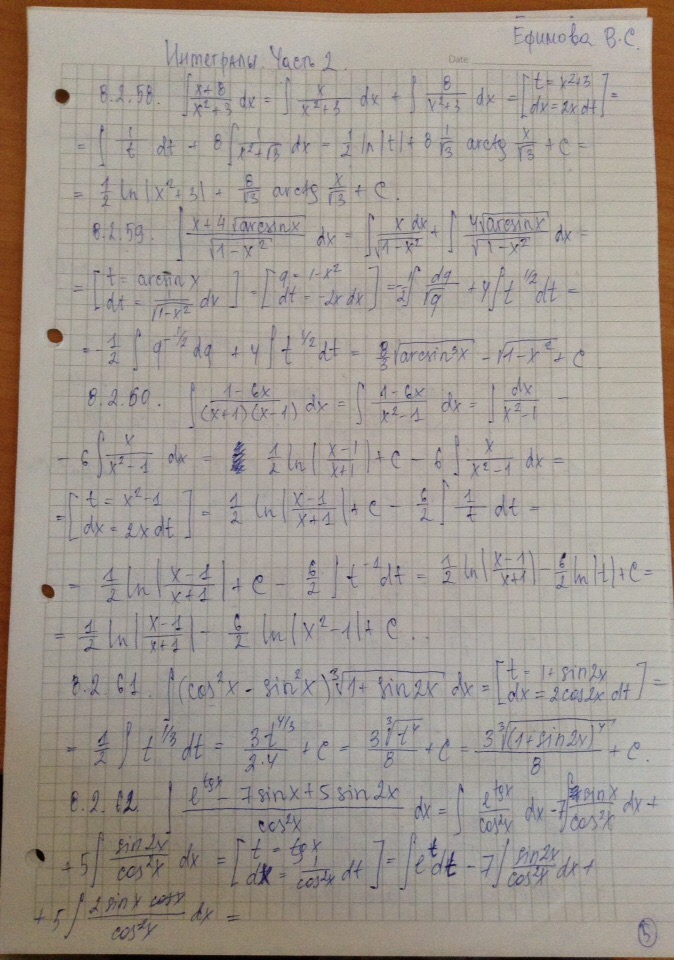 Ефимова В.С.
Интегралы. Часть 2.
Date
8.2.58. ∫ (x+8)/(x²+3) dx = ∫ x/(x²+3) dx + ∫ 8/(x²+3) dx = [t = x²+3; dx = 2x dt] =
= ∫ 1/t dt + 8∫ 1/(x²+√3) dx = 1/2 ln|t| + 8 1/√3 arctg x/√3 + C =
= 1/2 ln|x²+3| + 8/√3 arctg x/√3 + C.
8.2.59. ∫ (x+4√(arcsin x))/√(1-x²) dx = ∫ x dx/√(1-x²) + ∫ 4√(arcsin x)/√(1-x²) dx =
= [t = arcsin x; dt = 1/√(1-x²) dx] = [q = 1-x²; dt = -2x dx] = -1/2 ∫ dq/√q + 4∫ t^(1/2) dt =
= -1/2 ∫ q^(-1/2) dq + 4∫ t^(1/2) dt = 8/3 √(arcsin³x) - √(1-x²) + C.
8.2.60. ∫ (1-6x)/((x+1)(x-1)) dx = ∫ (1-6x)/(x²-1) dx = ∫ dx/(x²-1) -
- 6∫ x/(x²-1) dx = 1/2 ln|(x-1)/(x+1)| + C - 6∫ x/(x²-1) dx =
= [t = x²-1; dx = 2x dt] = 1/2 ln|(x-1)/(x+1)| + C - 6/2 ∫ 1/t dt =
= 1/2 ln|(x-1)/(x+1)| + C - 6/2 ∫ t^(-1) dt = 1/2 ln|(x-1)/(x+1)| - 6/2 ln|t| + C =
= 1/2 ln|(x-1)/(x+1)| - 6/2 ln|x²-1| + C.
8.2.61. ∫ (cos²x - sin²x) ∛(1+sin2x) dx = [t = 1+sin2x; dx = 2cos2x dt] =
= 1/2 ∫ t^(1/3) dt = 3t^(4/3)/(2·4) + C = 3∛(t⁴)/8 + C = 3∛((1+sin2x)⁴)/8 + C.
8.2.62. ∫ (e^(tgx) - 7sinx + 5sin2x)/cos²x dx = ∫ e^(tgx)/cos²x dx - 7∫ sinx/cos²x dx +
+ 5∫ sin2x/cos²x dx = [t = tgx; dx = 1/cos²x dt] = ∫ e^t dt - 7∫ sin2x/cos²x dx +
+ 5∫ (2sinx cosx)/cos²x dx =
5